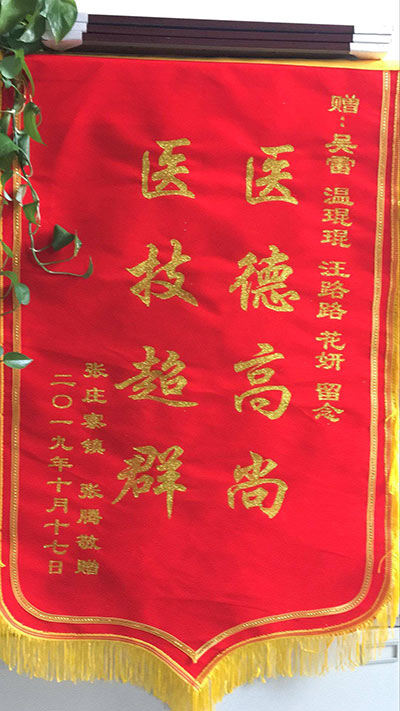 赠：吴雷 温琨琨 汪路路 花妍 留念
医德高尚
医技超群
张庄寨镇 张腾敬赠
二〇一九年十月十七日